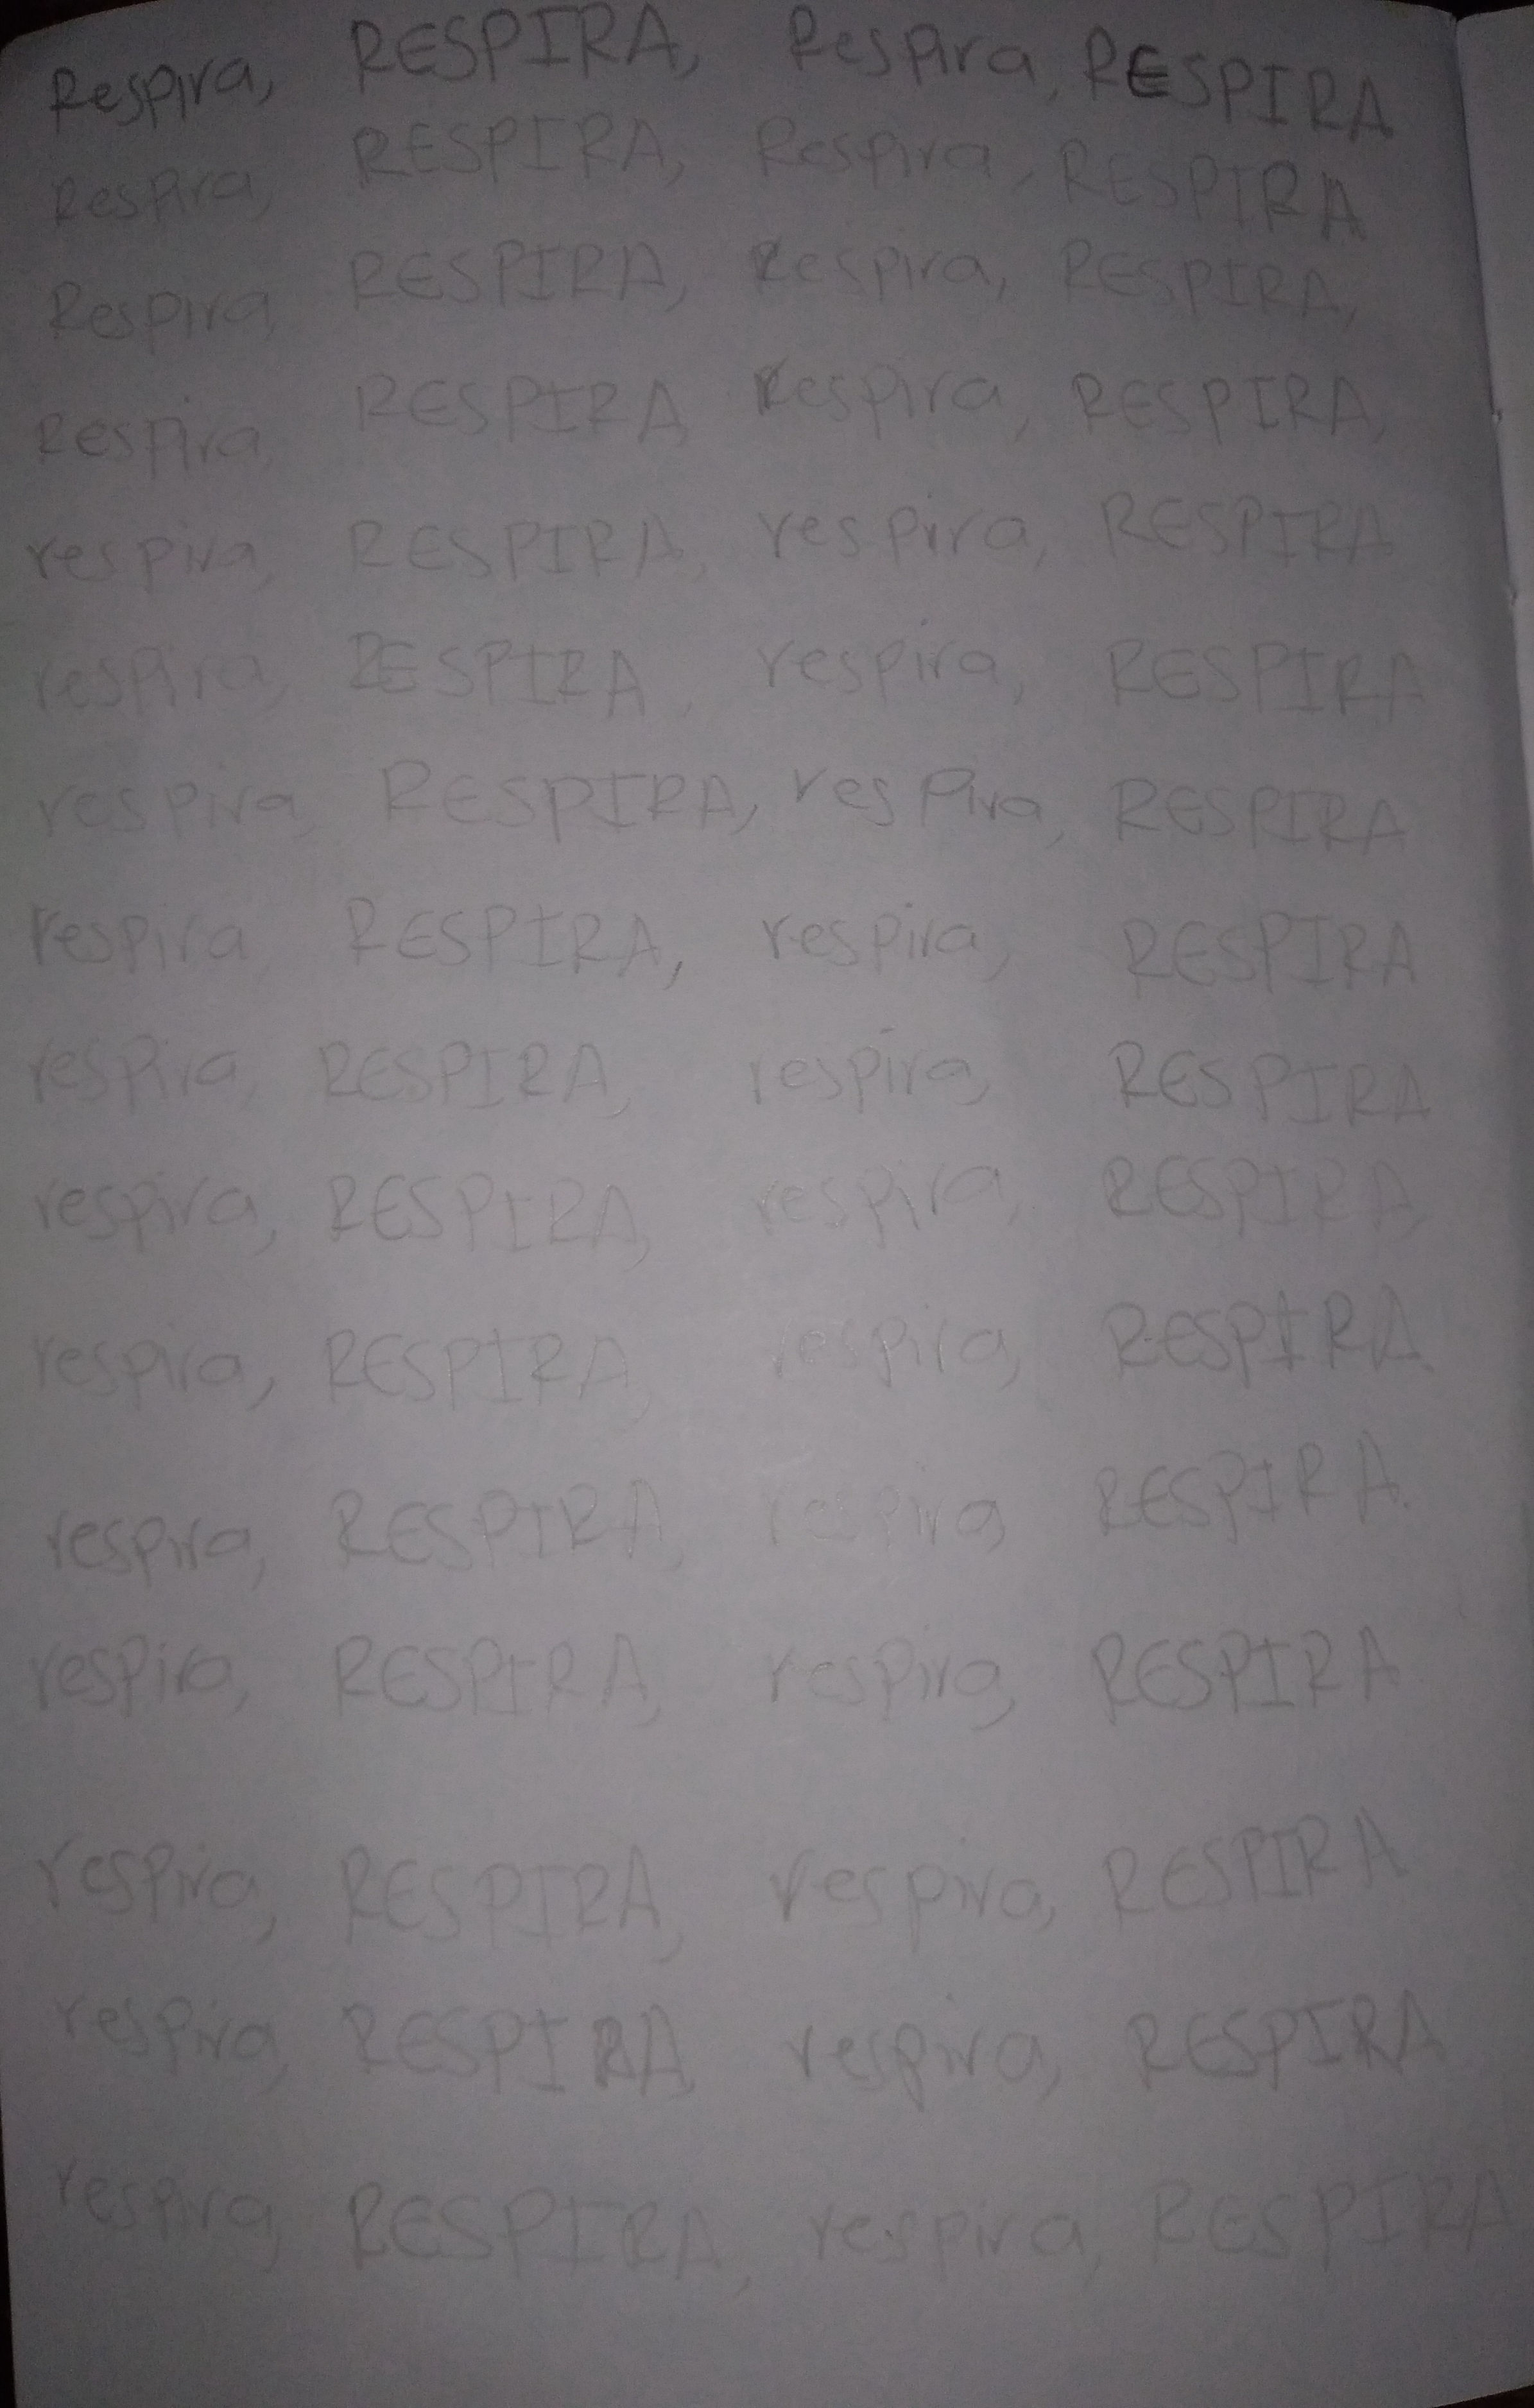 Respira, RESPIRA, Respira, RESPIRA
Respira, RESPIRA, Respira, RESPIRA
Respira, RESPIRA, Respira, RESPIRA,
Respira, RESPIRA, Respira, RESPIRA,
respira, RESPIRA, respira, RESPIRA
respira, RESPIRA, respira, RESPIRA
respira, RESPIRA, respira, RESPIRA
respira, RESPIRA, respira, RESPIRA
respira, RESPIRA, respira, RESPIRA
respira, RESPIRA, respira, RESPIRA,
respira, RESPIRA, respira, RESPIRA.
respira, RESPIRA, respira, RESPIRA.
respira, RESPIRA, respira, RESPIRA
respira, RESPIRA, respira, RESPIRA
respira, RESPIRA, respira, RESPIRA
respira, RESPIRA, respira, RESPIRA